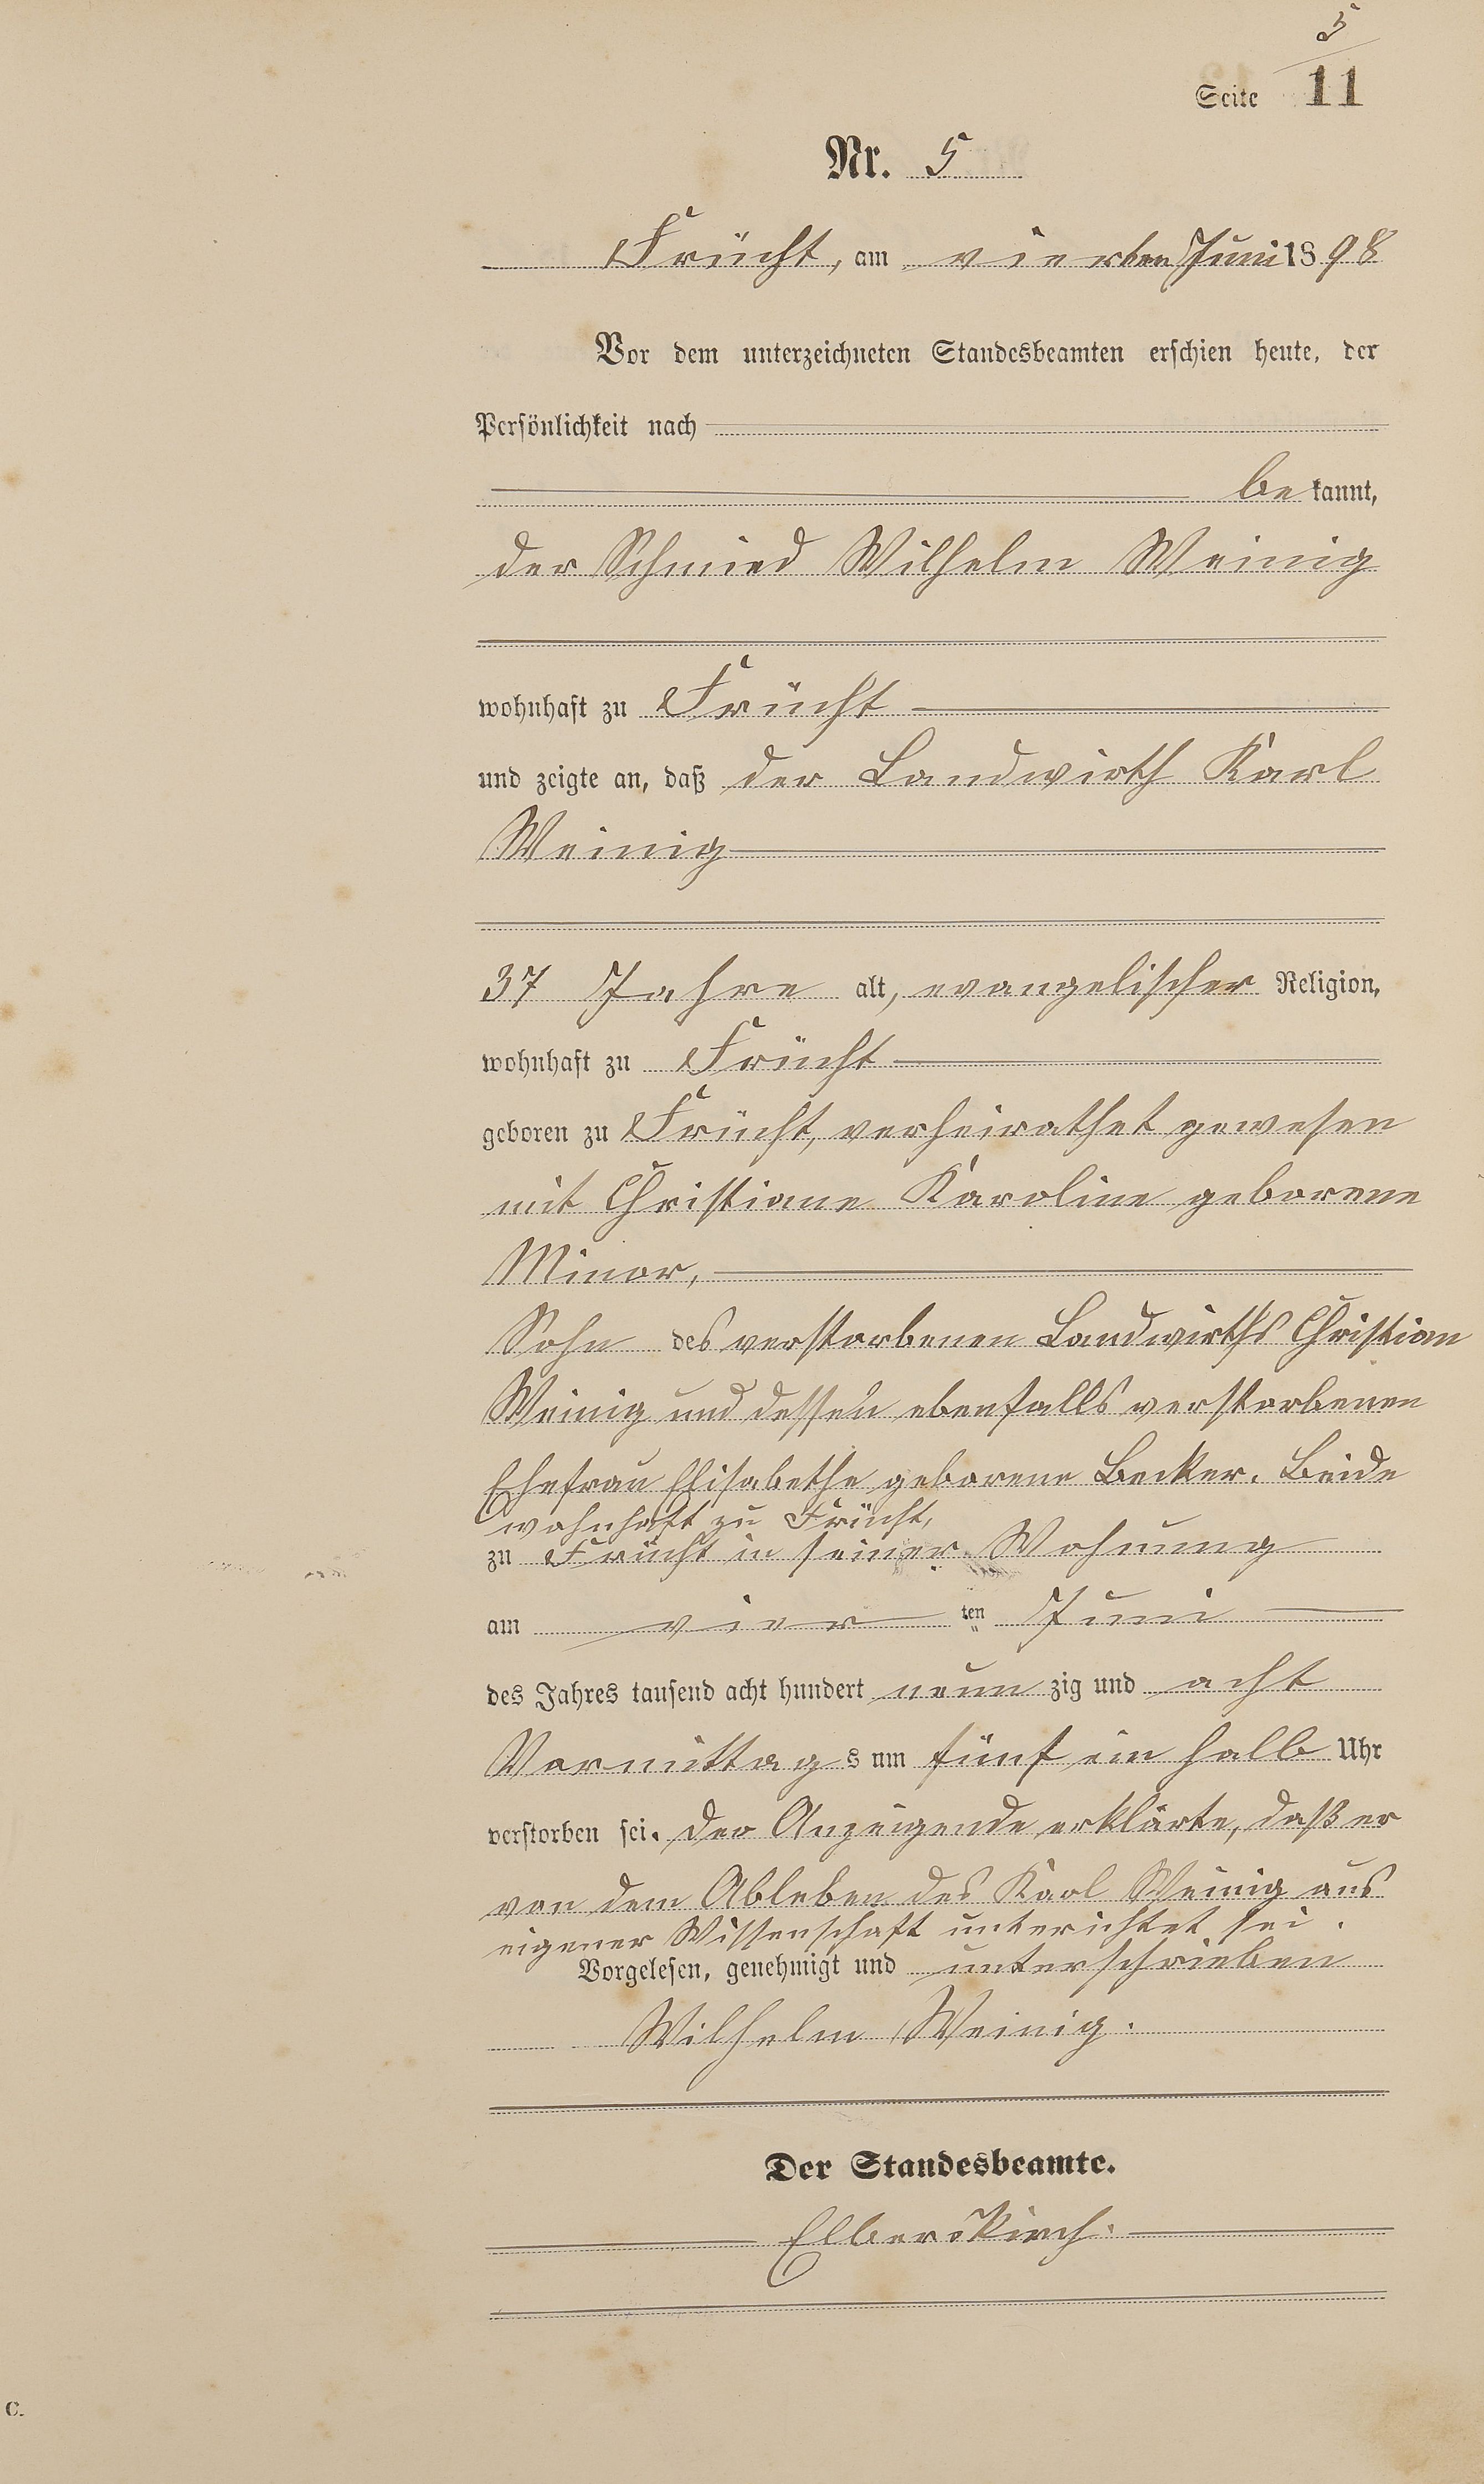 5
Seite 11
Nr. 5
Frücht, am vierten Juni 1898
Vor dem unterzeichneten Standesbeamten erschien heute, der
Persönlichkeit nach
bekannt,
der Schmied Wilhelm Weinig
wohnhaft zu Frücht
und zeigte an, daß der Landwirth Karl
Weinig
37 Jahre alt, evangelischer Religion,
wohnhaft zu Frücht
geboren zu Frücht, verheirathet gewesen
mit Christiane Karoline geborene
Minor,
Sohn des verstorbenen Landwirths Christian
Weinig und dessen ebenfalls verstorbenen
Ehefrau Elisabethe geborene Becker. Beide
wohnhaft zu Frücht,
zu Frücht in seiner Wohnung
am vier ten Juni
des Jahres tausend acht hundert neunzig und acht
Vormittags um fünf ein halb Uhr
verstorben sei. Der Anzeigende erklärte, daß er
von dem Ableben des Karl Weinig aus
eigener Wissenschaft unterichtet sei.
Vorgelesen, genehmigt und unterschrieben
Wilhelm Weinig.
Der Standesbeamte.
Elberskirch.
C.